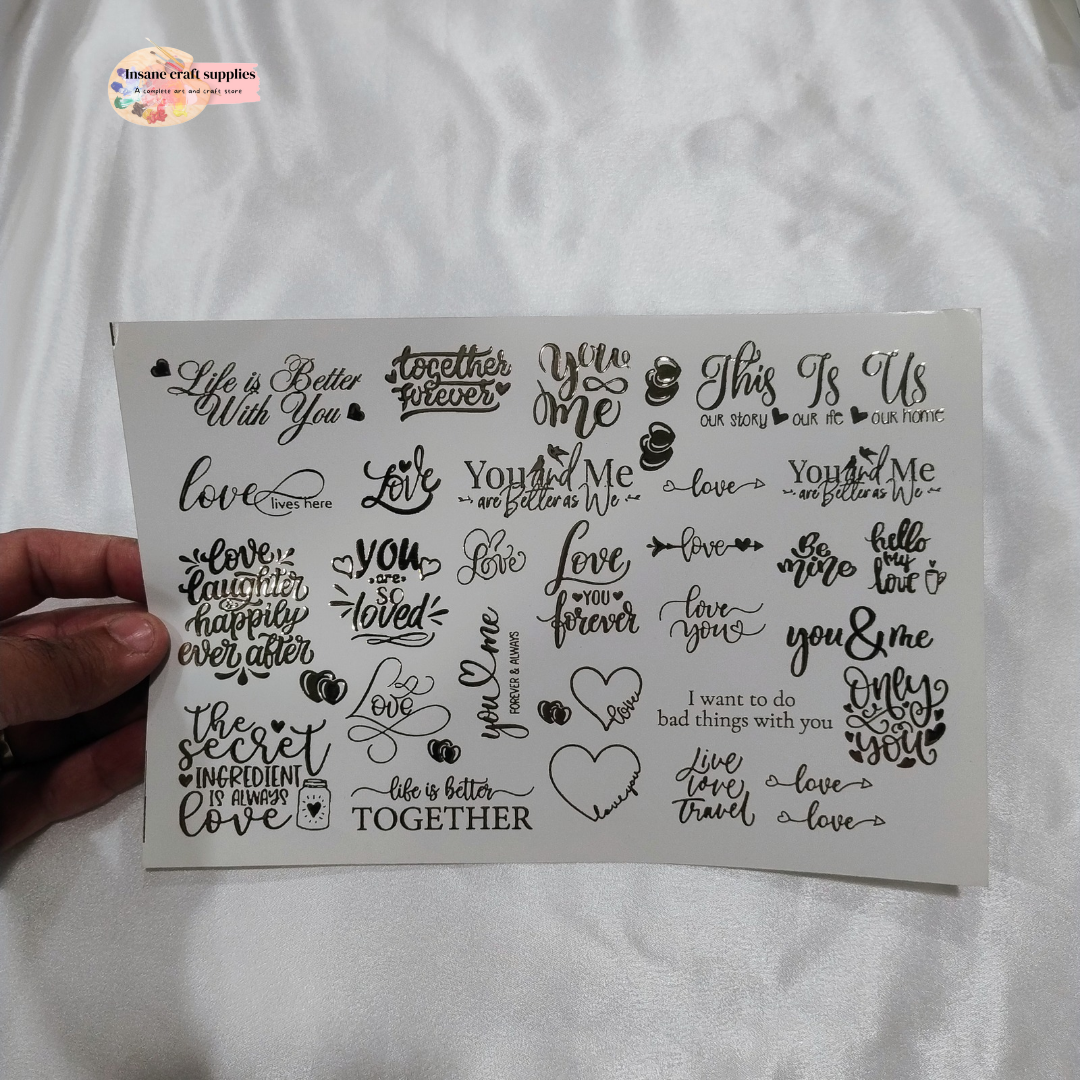 Insane craft supplies
A complete art and craft store
Life is Better
With You
together
forever
You
me
This Is Us
our story our life our home
love
lives here
Love
You and Me
are Better as We
love
You and Me
are Better as We
love
laughter
happily
ever after
you
are
so
loved
Love
Love
you
forever
love
Be
mine
hello
my
love
love
you
you & me
you me
FOREVER & ALWAYS
Love
love
I want to do
bad things with you
only
you
the
secret
INGREDIENT
IS ALWAYS
love
life is better
TOGETHER
love you
Live
love
Travel
love
love